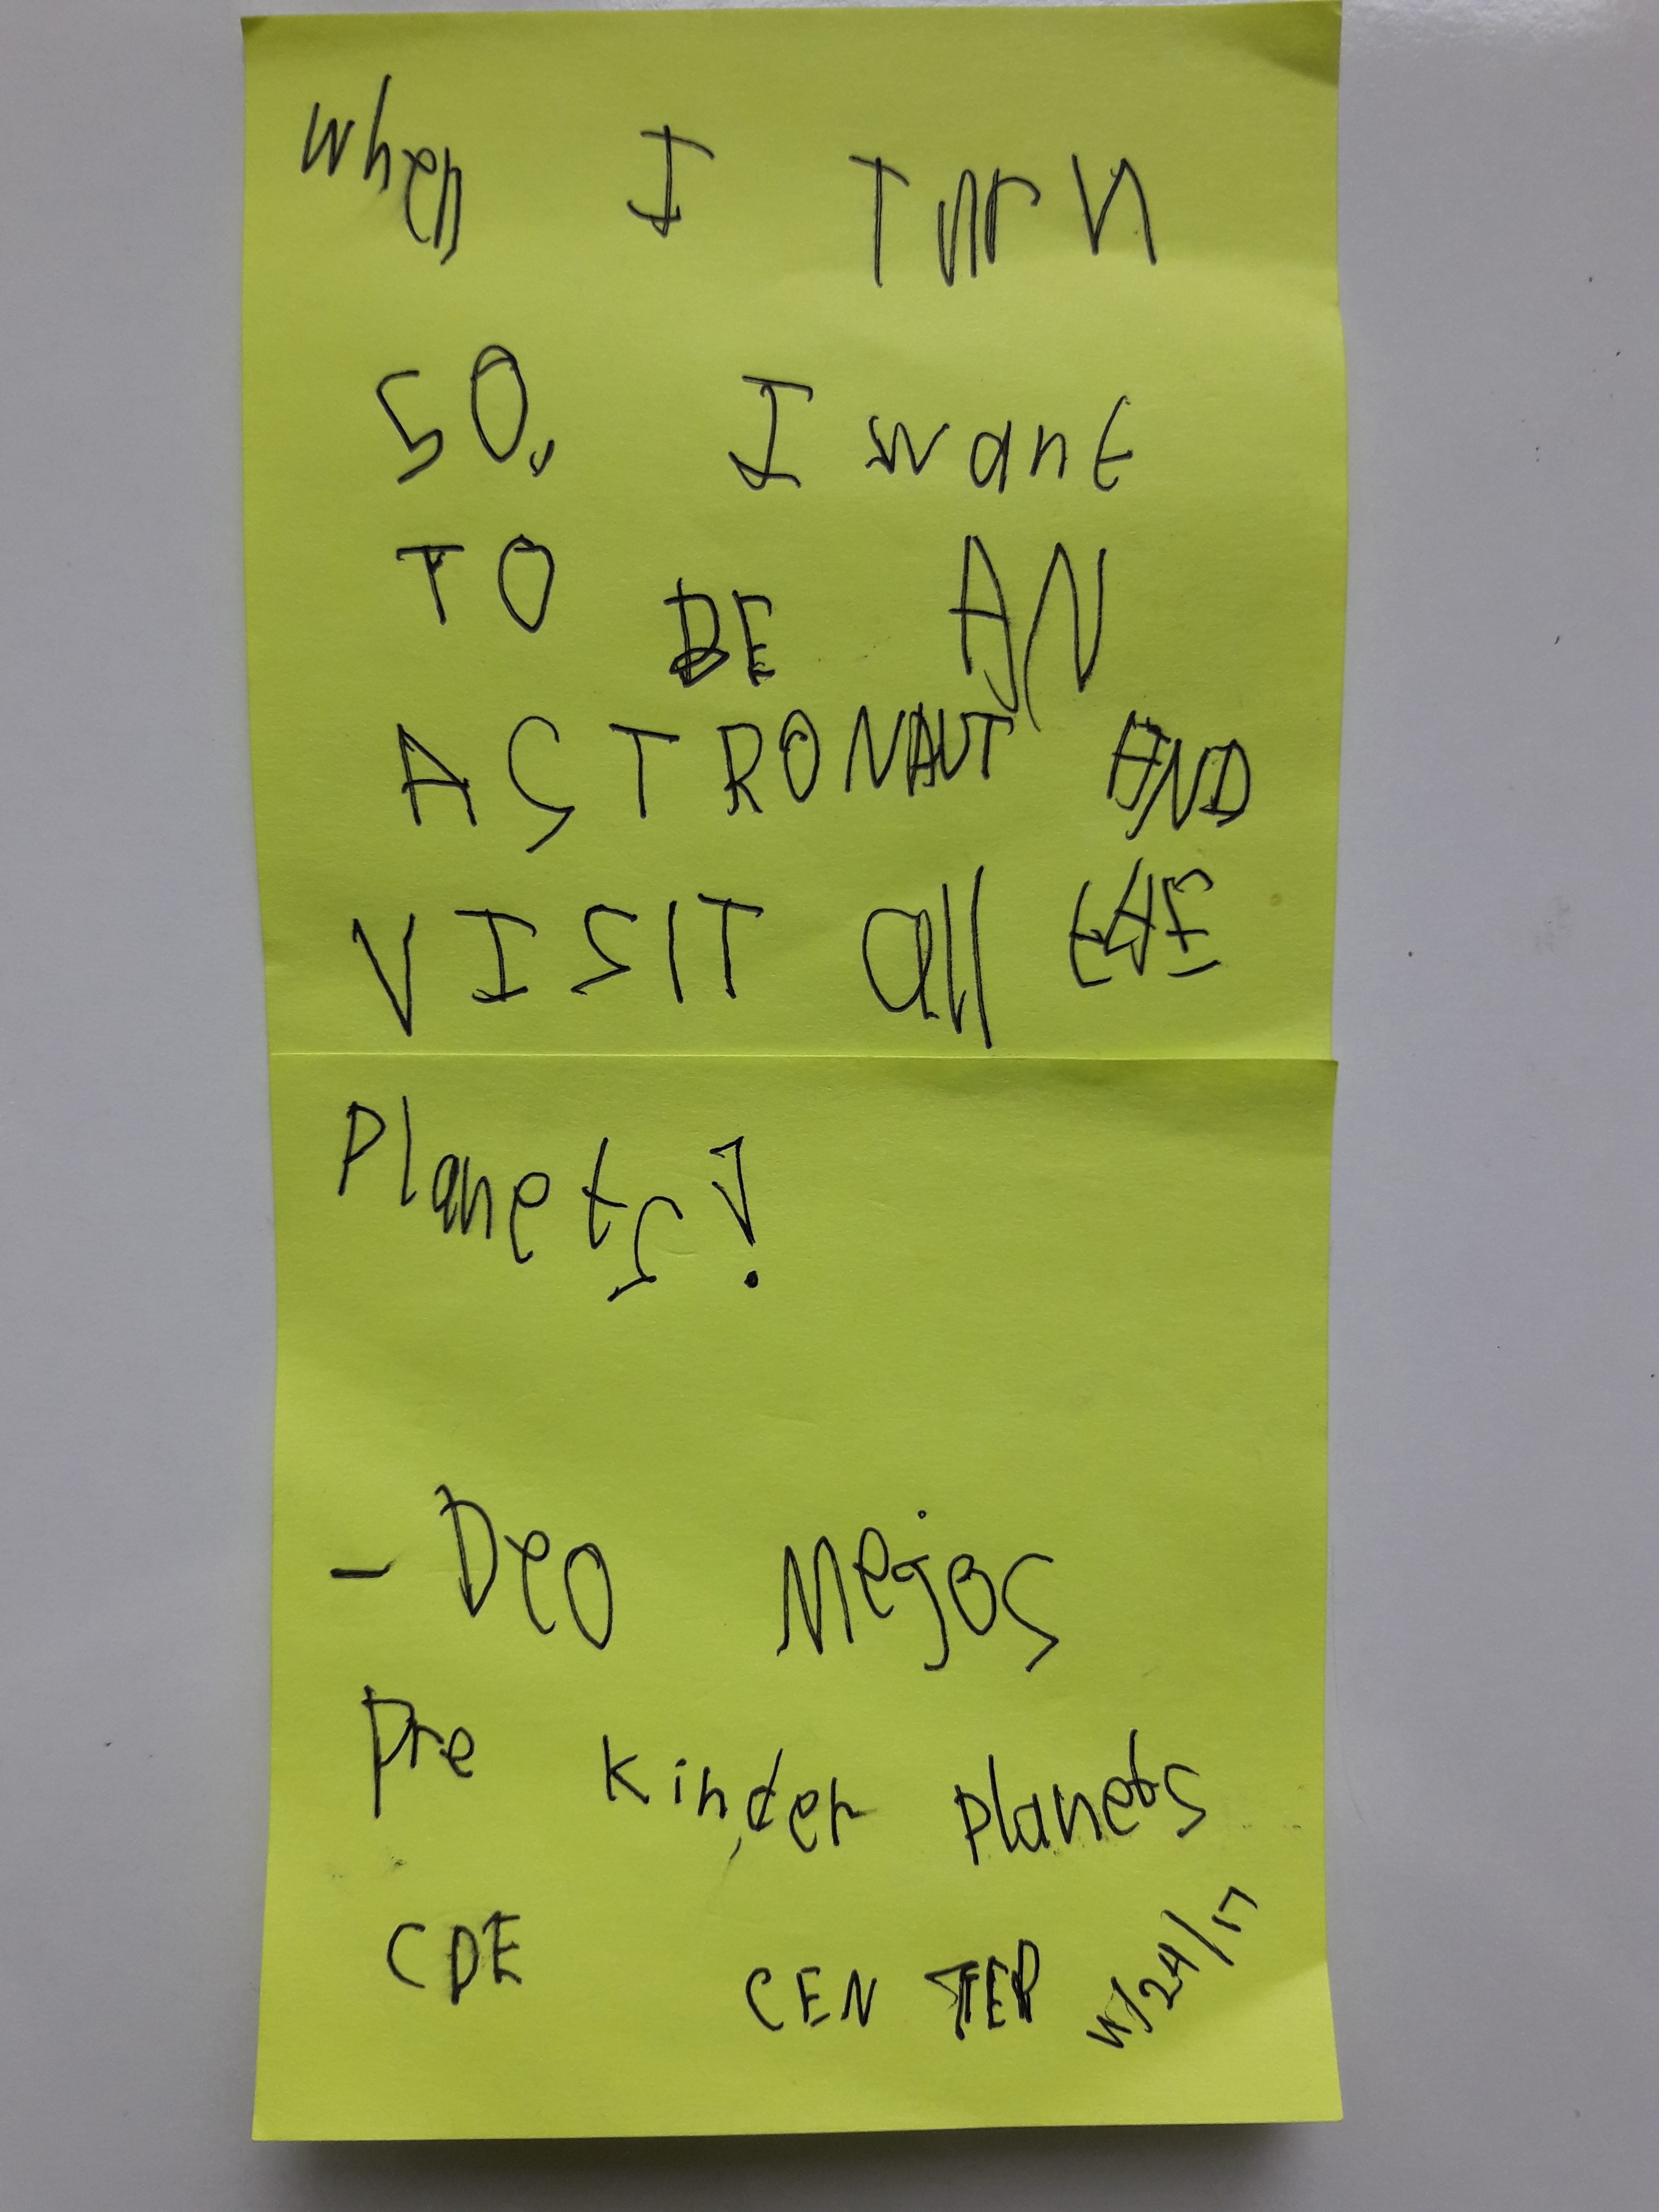 When I Turn
50, I want
TO BE AN
ASTRONAUT AND
VISIT all tHE
Planets!
- Deo Mejos
Pre kinder planets
CDE CENTER